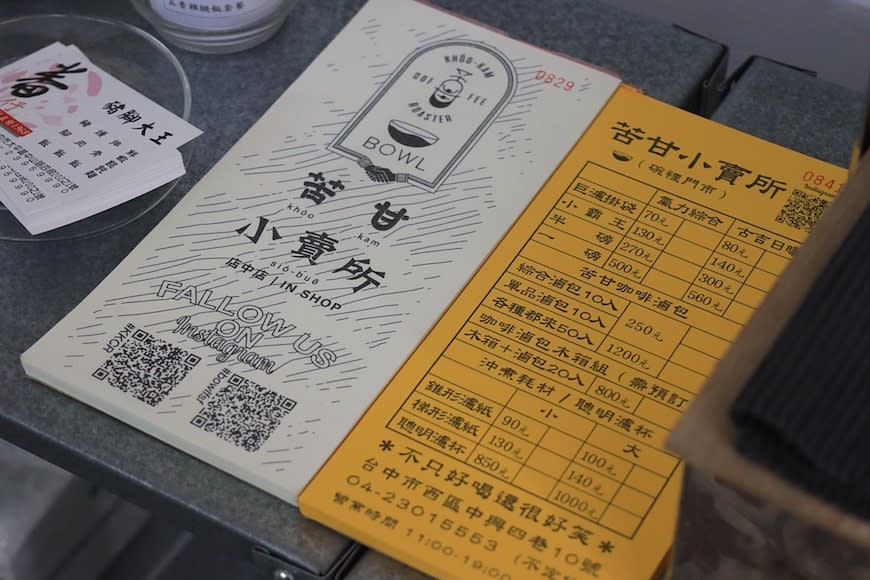 五香雞腿飯套餐
豬腳大王
0829
KHÓO-KAM
COFFEE
ROASTER
BOWL
苦甘
khóo kam
小賣所
sió-buē
店中店 | IN SHOP
FALLOW US
ON
Instagram
0841
苦甘小賣所
(碗裡門市)
巨濾掛袋 氣力綜合 古吉日曬
小霸王 70元 80元
半磅 130元 140元
一磅 270元 300元
500元 560元
苦甘咖啡滷包
綜合滷包10入
單品滷包10入 250元
各種都來50入 1200元
咖啡滷包木箱組(需預訂
木箱+滷包20入 800元
沖煮耗材/聰明濾杯
小 大
錐形濾紙 90元 100元
梯形濾紙 130元 140元
聰明濾杯 850元 1000元
*不只好喝還很好笑*
台中市西區中興四巷10號
04-23015553
營業時間 11:00-19:00 (不定